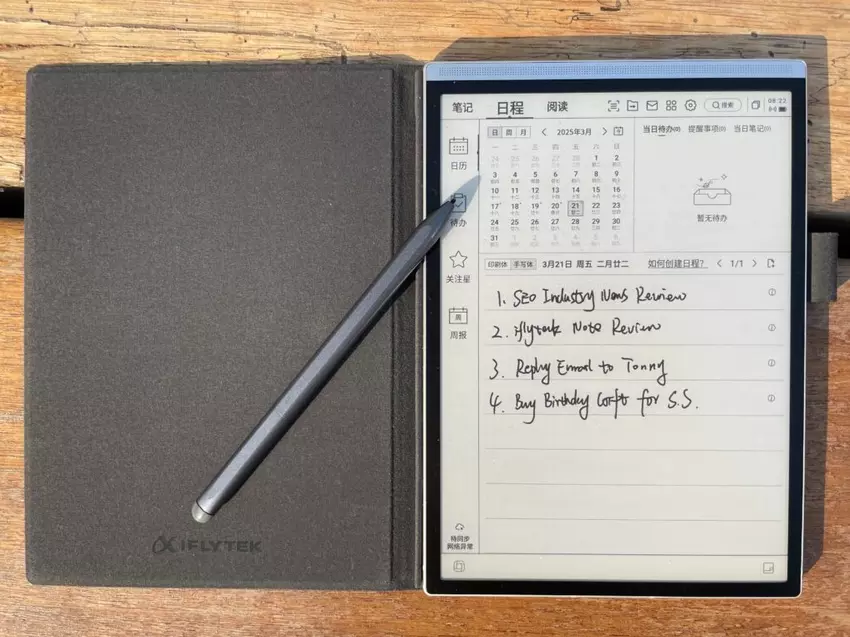 笔记 日程 阅读 搜索 08:23
日 周 月 2025年3月 当日待办(0) 提醒事项(0) 当日笔记(0)
日历
一 二 三 四 五 六 日
24 25 26 27 28 1 2
3 4 5 6 7 8 9
10 11 12 13 14 15 16
17 18 19 20 21 22 23
24 25 26 27 28 29 30
31 1 2 3 4 5 6
暂无待办
待办
关注星
周
周报
印刷体 手写体 3月21日 周五 二月廿二 如何创建日程? 1/1
1. SEO Industry News Review
2. iflytek Note Review
3. Reply Email to Tonny
4. Buy Birthday Gift for S.S.
待同步
网络异常
iFLYTEK